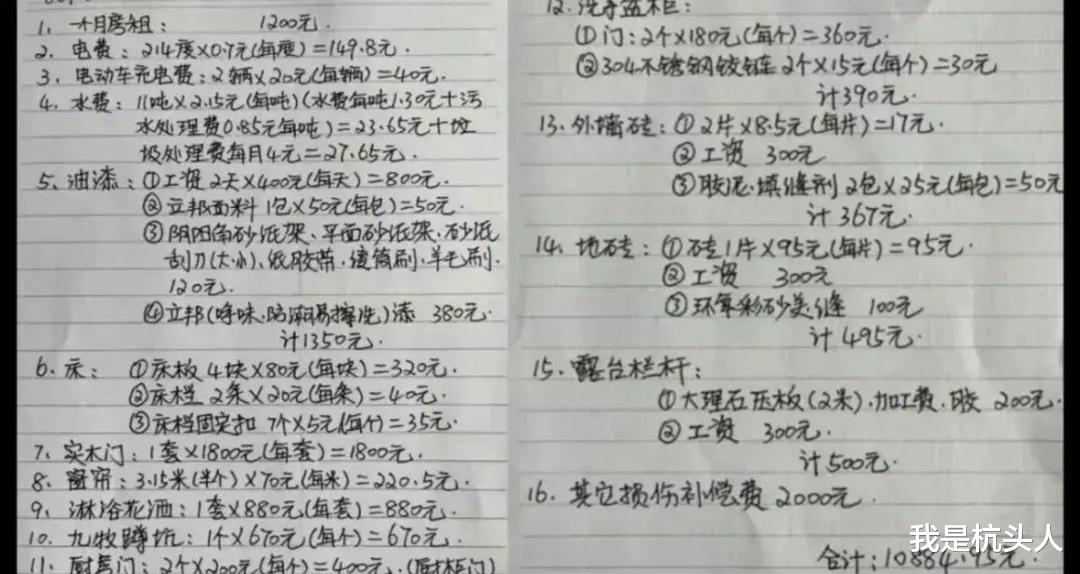 1. 一个月房租： 1200元.
2. 电费：214度×0.7元(每度)=149.8元.
3. 电动车充电费：2辆×20元(每辆)=40元.
4. 水费：11吨×2.15元(每吨)(水费每吨1.30元+污
水处理费0.85元每吨)=23.65元+垃
圾处理费每月4元=27.65元.
5. 油漆：①工资 2天×400元(每天)=800元.
②立邦面料 1包×50元(每包)=50元.
③阴阳角砂纸架、平面砂纸架、砂纸
刮刀(大小)、纸胶带、滚筒刷、羊毛刷.
120元.
④立邦(净味、防潮易擦洗)漆 380元.
计1350元.
6. 床： ①床板 4块×80元(每块)=320元.
②床档 2条×20元(每条)=40元.
③床档固定扣 7个×5元(每个)=35元.
7. 实木门：1套×1800元(每套)=1800元.
8. 窗帘：3.15米(半个)×70元(每米)=220.5元.
9. 淋浴花洒：1套×880元(每套)=880元.
10. 九牧蹲坑：1个×670元(每个)=670元.
11. 厨房门：2个×200元(每个)=400元.(厨柜门)
12. 洗手盆柜：
①门：2个×180元(每个)=360元.
②304不锈钢铰链 2个×15元(每个)=30元
计390元.
13. 外墙砖：①2片×8.5元(每片)=17元.
②工资 300元
③胶泥.填缝剂 2包×25元(每包)=50元
计367元.
14. 地砖：①砖1片×95元(每片)=95元.
②工资 300元
③环氧彩砂美缝 100元
计495元.
15. 露台栏杆：
①大理石压板(2米).加工费.胶 200元.
②工资 300元.
计500元.
16. 其它损伤补偿费 2000元.
合计：10884.95元.
我是杭头人